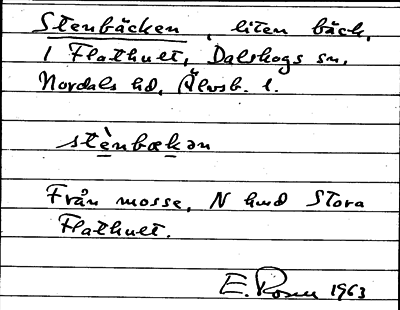 Stenbäcken, liten bäck,
i Flathult, Dalskogs sn,
Nordals hd, Älvsb. l.
stènbækən
Från mosse, N hmd Stora
Flathult.
E. Rosén 1963